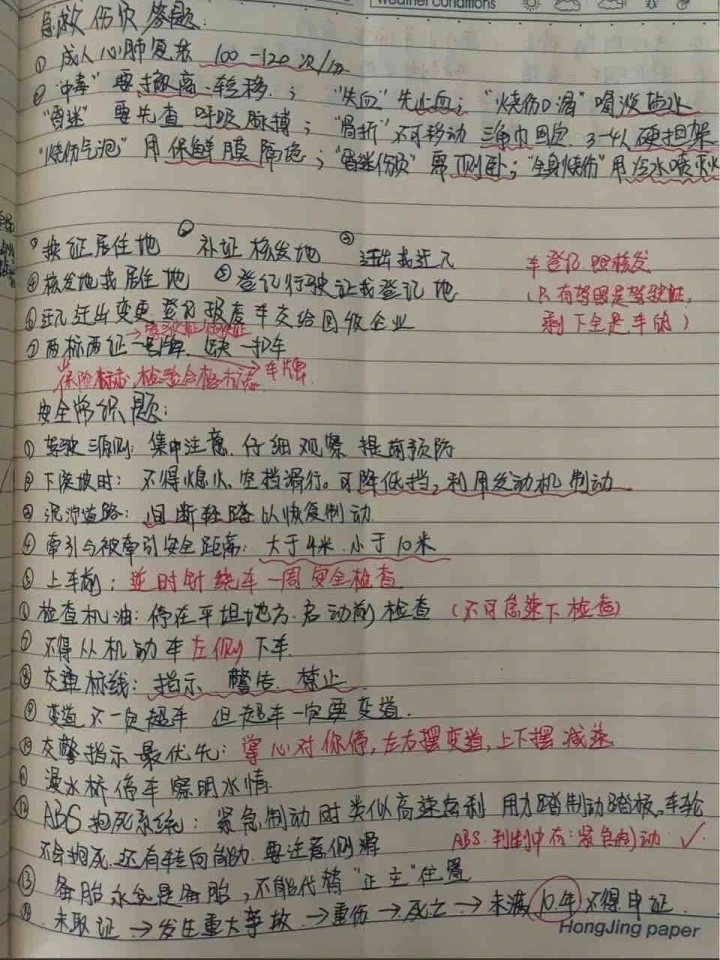 Weather conditions
急救伤员答题:
① 成人心肺复苏 100-120次/分
② "中毒"要撤离、转移; "失血"先止血; "烧伤口渴"喝淡盐水
"昏迷"要先查呼吸脉搏; "骨折"不可移动 三角巾固定 3-4人硬担架
"烧伤气泡"用保鲜膜隔绝; "昏迷伤员"要侧卧; "全身烧伤"用冷水喷灭火
① 换证居住地 ② 补证核发地 ③ 迁出或迁入 车登记 照核发
④ 核发地或居住地 ⑤ 登记行驶证或登记地 (只有驾照是驾驶证,
⑥ 迁入迁出变更登记 报废车交给回收企业 剩下全是车的)
⑦ 两标两证一号牌 缺一扣车
保险标志,检验合格标志 → 车牌
安全常识题:
① 驾驶三原则: 集中注意、仔细观察 提前预防
② 下陡坡时: 不得熄火、空挡滑行。可降低挡,利用发动机制动
③ 泥泞道路: 间断轻踏以恢复制动
④ 牵引与被牵引安全距离: 大于4米、小于10米
⑤ 上车前: 逆时针绕车一周安全检查
⑥ 检查机油: 停在平坦地方、启动前检查 (不可怠速下检查)
⑦ 不得从机动车左侧下车
⑧ 交通标线: 指示 警告 禁止
⑨ 变道不一定超车 但超车一定要变道.
⑩ 交警指示最优先: 掌心对你停,左右摆变道,上下摆减速
⑪ 漫水桥停车察明水情
⑫ ABS抱死系统: 紧急制动时类似高速急刹 用力踏制动踏板。车轮
不会抱死 还有转向能力 要注意侧滑 ABS 判断中有:紧急制动 ✓
⑬ 备胎永远是备胎,不能代替"正主"位置
⑭ 未取证 → 发生重大事故 → 重伤 → 死亡 → 未满10年不得申证.
HongJing paper